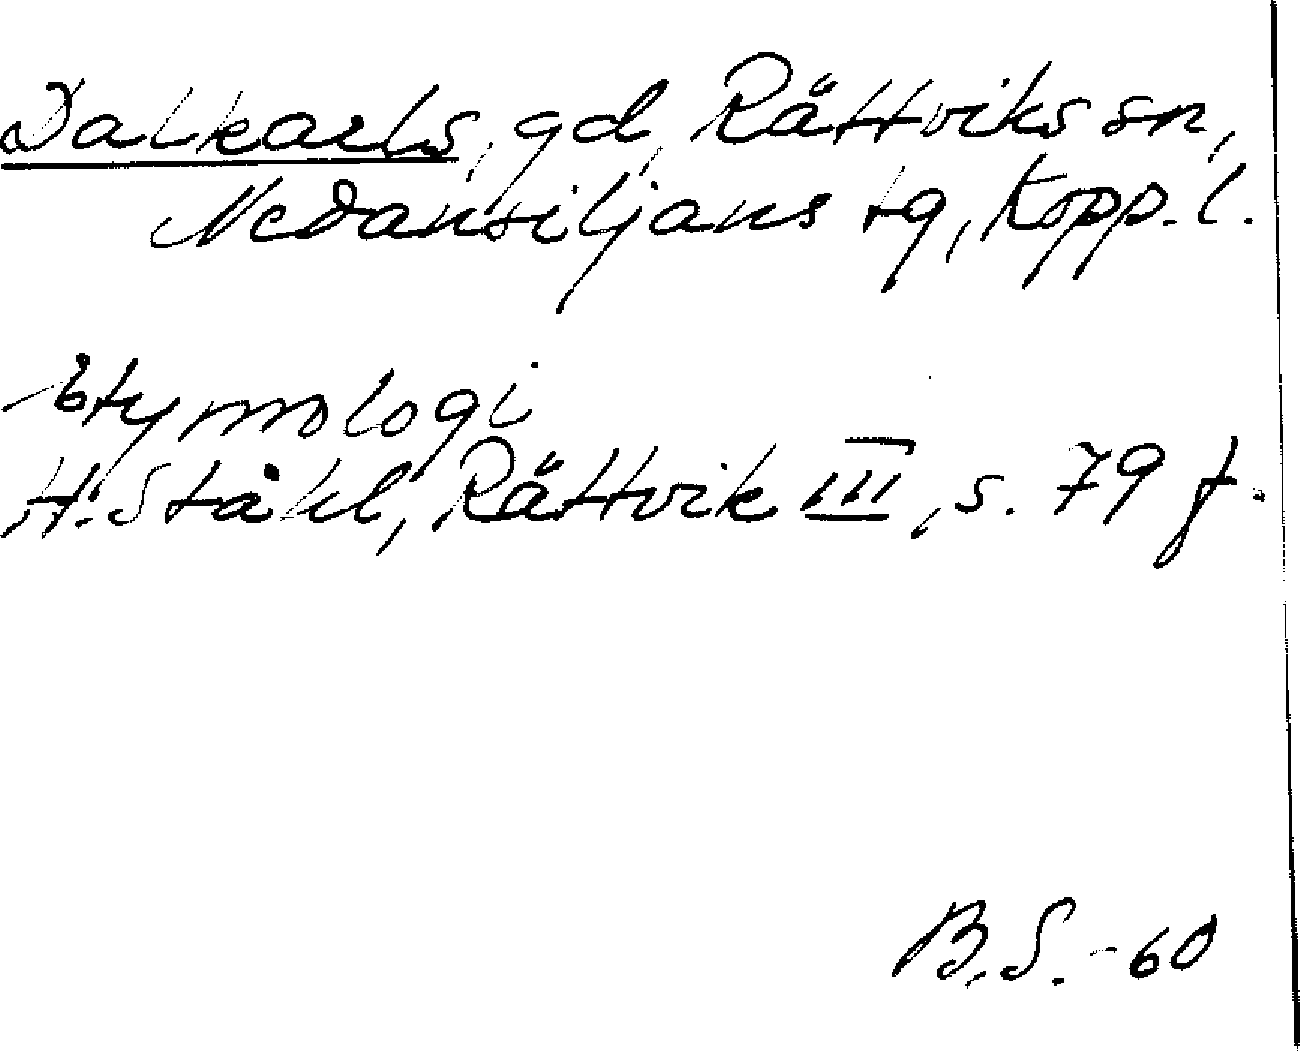 Dalkarls, gd, Rättviks sn,
Nedansiljans tg, Kopp. l.
Etymologi
H. Ståhl, Rättvik III, s. 79 f.
B.S. - 60